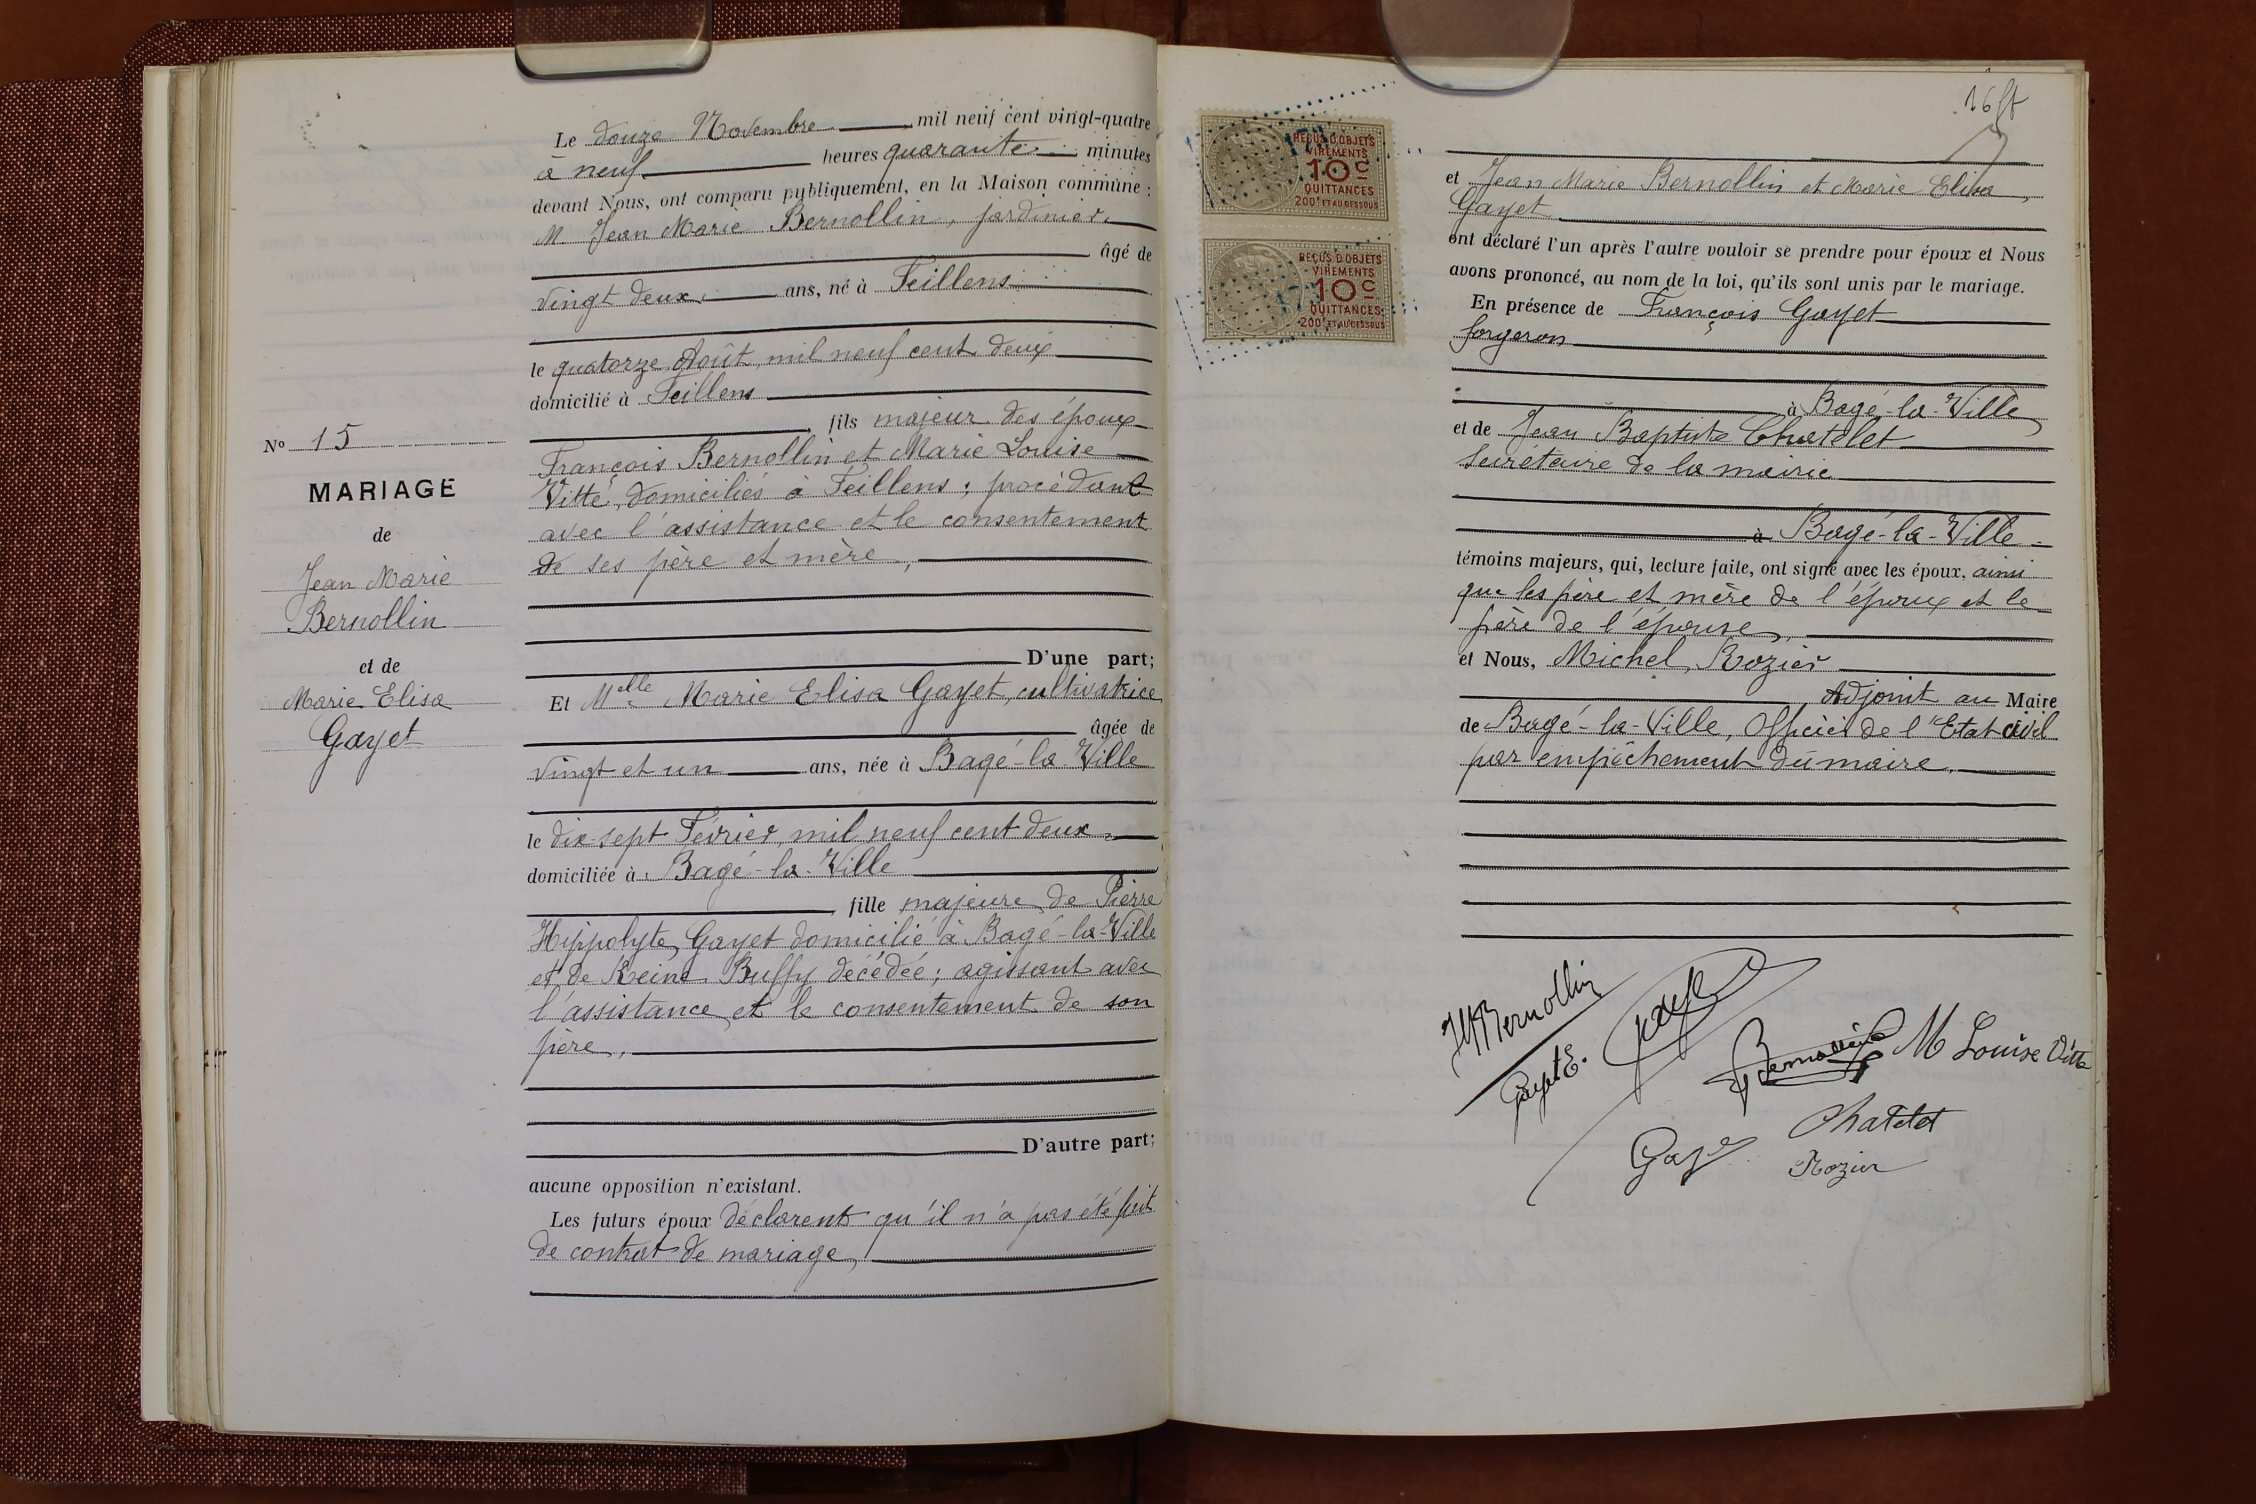 Le douze Novembre mil neuf cent vingt-quatre
à neuf heures quarante minutes
devant Nous, ont comparu publiquement, en la Maison commune :
M. Jean Marie Bernollin, jardinier,
âgé de
vingt deux ans, né à Feillens
le quatorze Août mil neuf cent deux
domicilié à Feillens
fils majeur des époux
François Bernollin et Marie Louise
Vitte, domiciliés à Feillens ; procédant
avec l'assistance et le consentement
de ses père et mère,
D'une part;
Et Melle Marie Elisa Gayet, cultivatrice
âgée de
vingt et un ans, née à Bagé-la-Ville
le dix-sept Février mil neuf cent deux,
domiciliée à Bagé-la-Ville
fille majeure de Pierre
Hippolyte Gayet domicilié à Bagé-la-Ville
et de Reine Buffy décédée ; agissant avec
l'assistance et le consentement de son
père,
D'autre part;
aucune opposition n'existant.
Les futurs époux déclarent qu'il n'a pas été fait
de contrat de mariage,
No 15
MARIAGE
de
Jean Marie
Bernollin
et de
Marie Elisa
Gayet
REÇUS D'OBJETS
VIREMENTS
10c
QUITTANCES
200f ET AU DESSOUS
REÇUS D'OBJETS
VIREMENTS
10c
QUITTANCES
200f ET AU DESSOUS
16
et Jean Marie Bernollin et Marie Elisa
Gayet
ont déclaré l'un après l'autre vouloir se prendre pour époux et Nous
avons prononcé, au nom de la loi, qu'ils sont unis par le mariage.
En présence de François Gayet
forgeron
à Bagé-la-Ville
et de Jean Baptiste Chatelet
secretaire de la mairie
à Bagé-la-Ville
témoins majeurs, qui, lecture faite, ont signé avec les époux, ainsi
que les père et mère de l'époux et le
père de l'épouse,
et Nous, Michel Rozier
Adjoint au Maire
de Bagé-la-Ville, Officier de l'Etat civil
par empêchement du maire.
JM Bernollin
Gayet E.
Bernollin
M Louise Vitte
Chatelet
Rozier